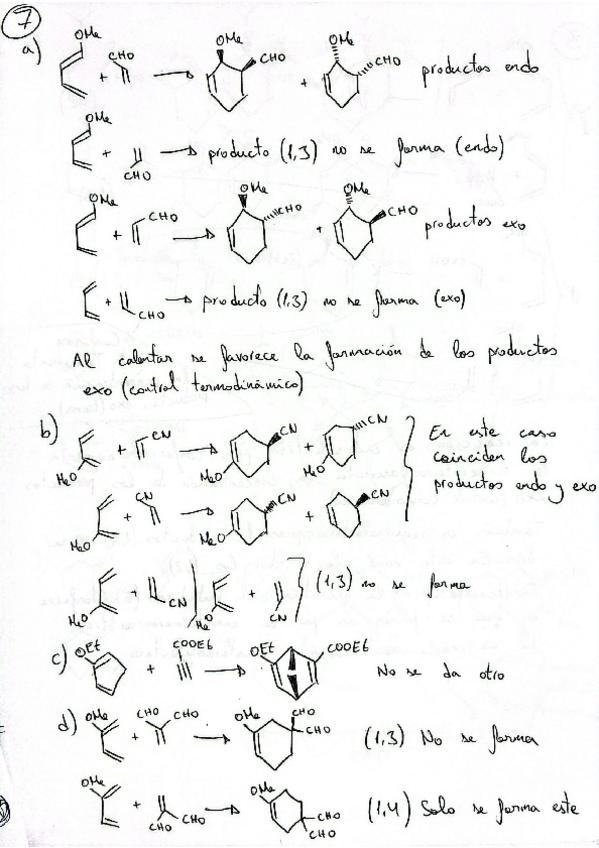 7
a) OMe CHO OMe CHO OMe CHO
+ → + productos endo
OMe
+ → producto (1,3) no se forma (endo)
CHO
OMe CHO OMe CHO OMe CHO
+ → + productos exo
+ → producto (1,3) no se forma (exo)
CHO
Al calentar se favorece la formación de los productos
exo (control termodinámico)
b) MeO + CN → MeO CN + MeO CN } En este caso
coinciden los
productos endo y exo
MeO + CN → MeO CN + CN
MeO + CN ) MeO + CN } (1,3) no se forma
c) OEt + COOEt → OEt COOEt No se da otro
d) OMe + CHO CHO → OMe CHO CHO (1,3) No se forma
OMe + CHO CHO → OMe CHO CHO (1,4) Solo se forma este